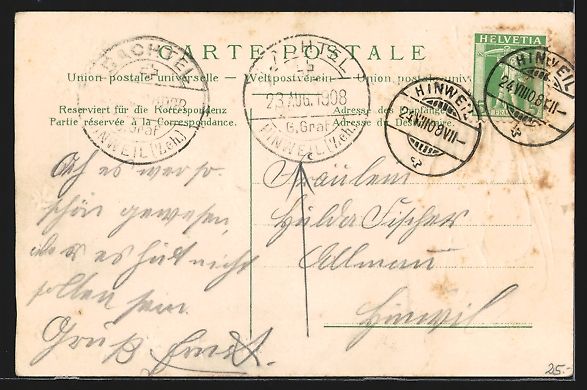 CARTE POSTALE
Union postale universelle — Weltpostverein — Union postale univ
Reserviert für die Korrespondenz
Partie réservée à la Correspondance.
Adresse des Empfängers
Adresse du Destinataire.
HELVETIA
BACHTEL
G. Graf
HINWEIL (Zch.)
BACHTEL
23 AUG. 1908
G. Graf
HINWEIL (Zch.)
HINWEIL
24.VIII.08.VII
HINWEIL
24.VIII.08.VII
Ach es wer so
schön gewesen,
es hät nicht
sollen sein.
Gruß Ernst.
Fräulein
Hulda Fischer
Allmau
Hinwil
25.-